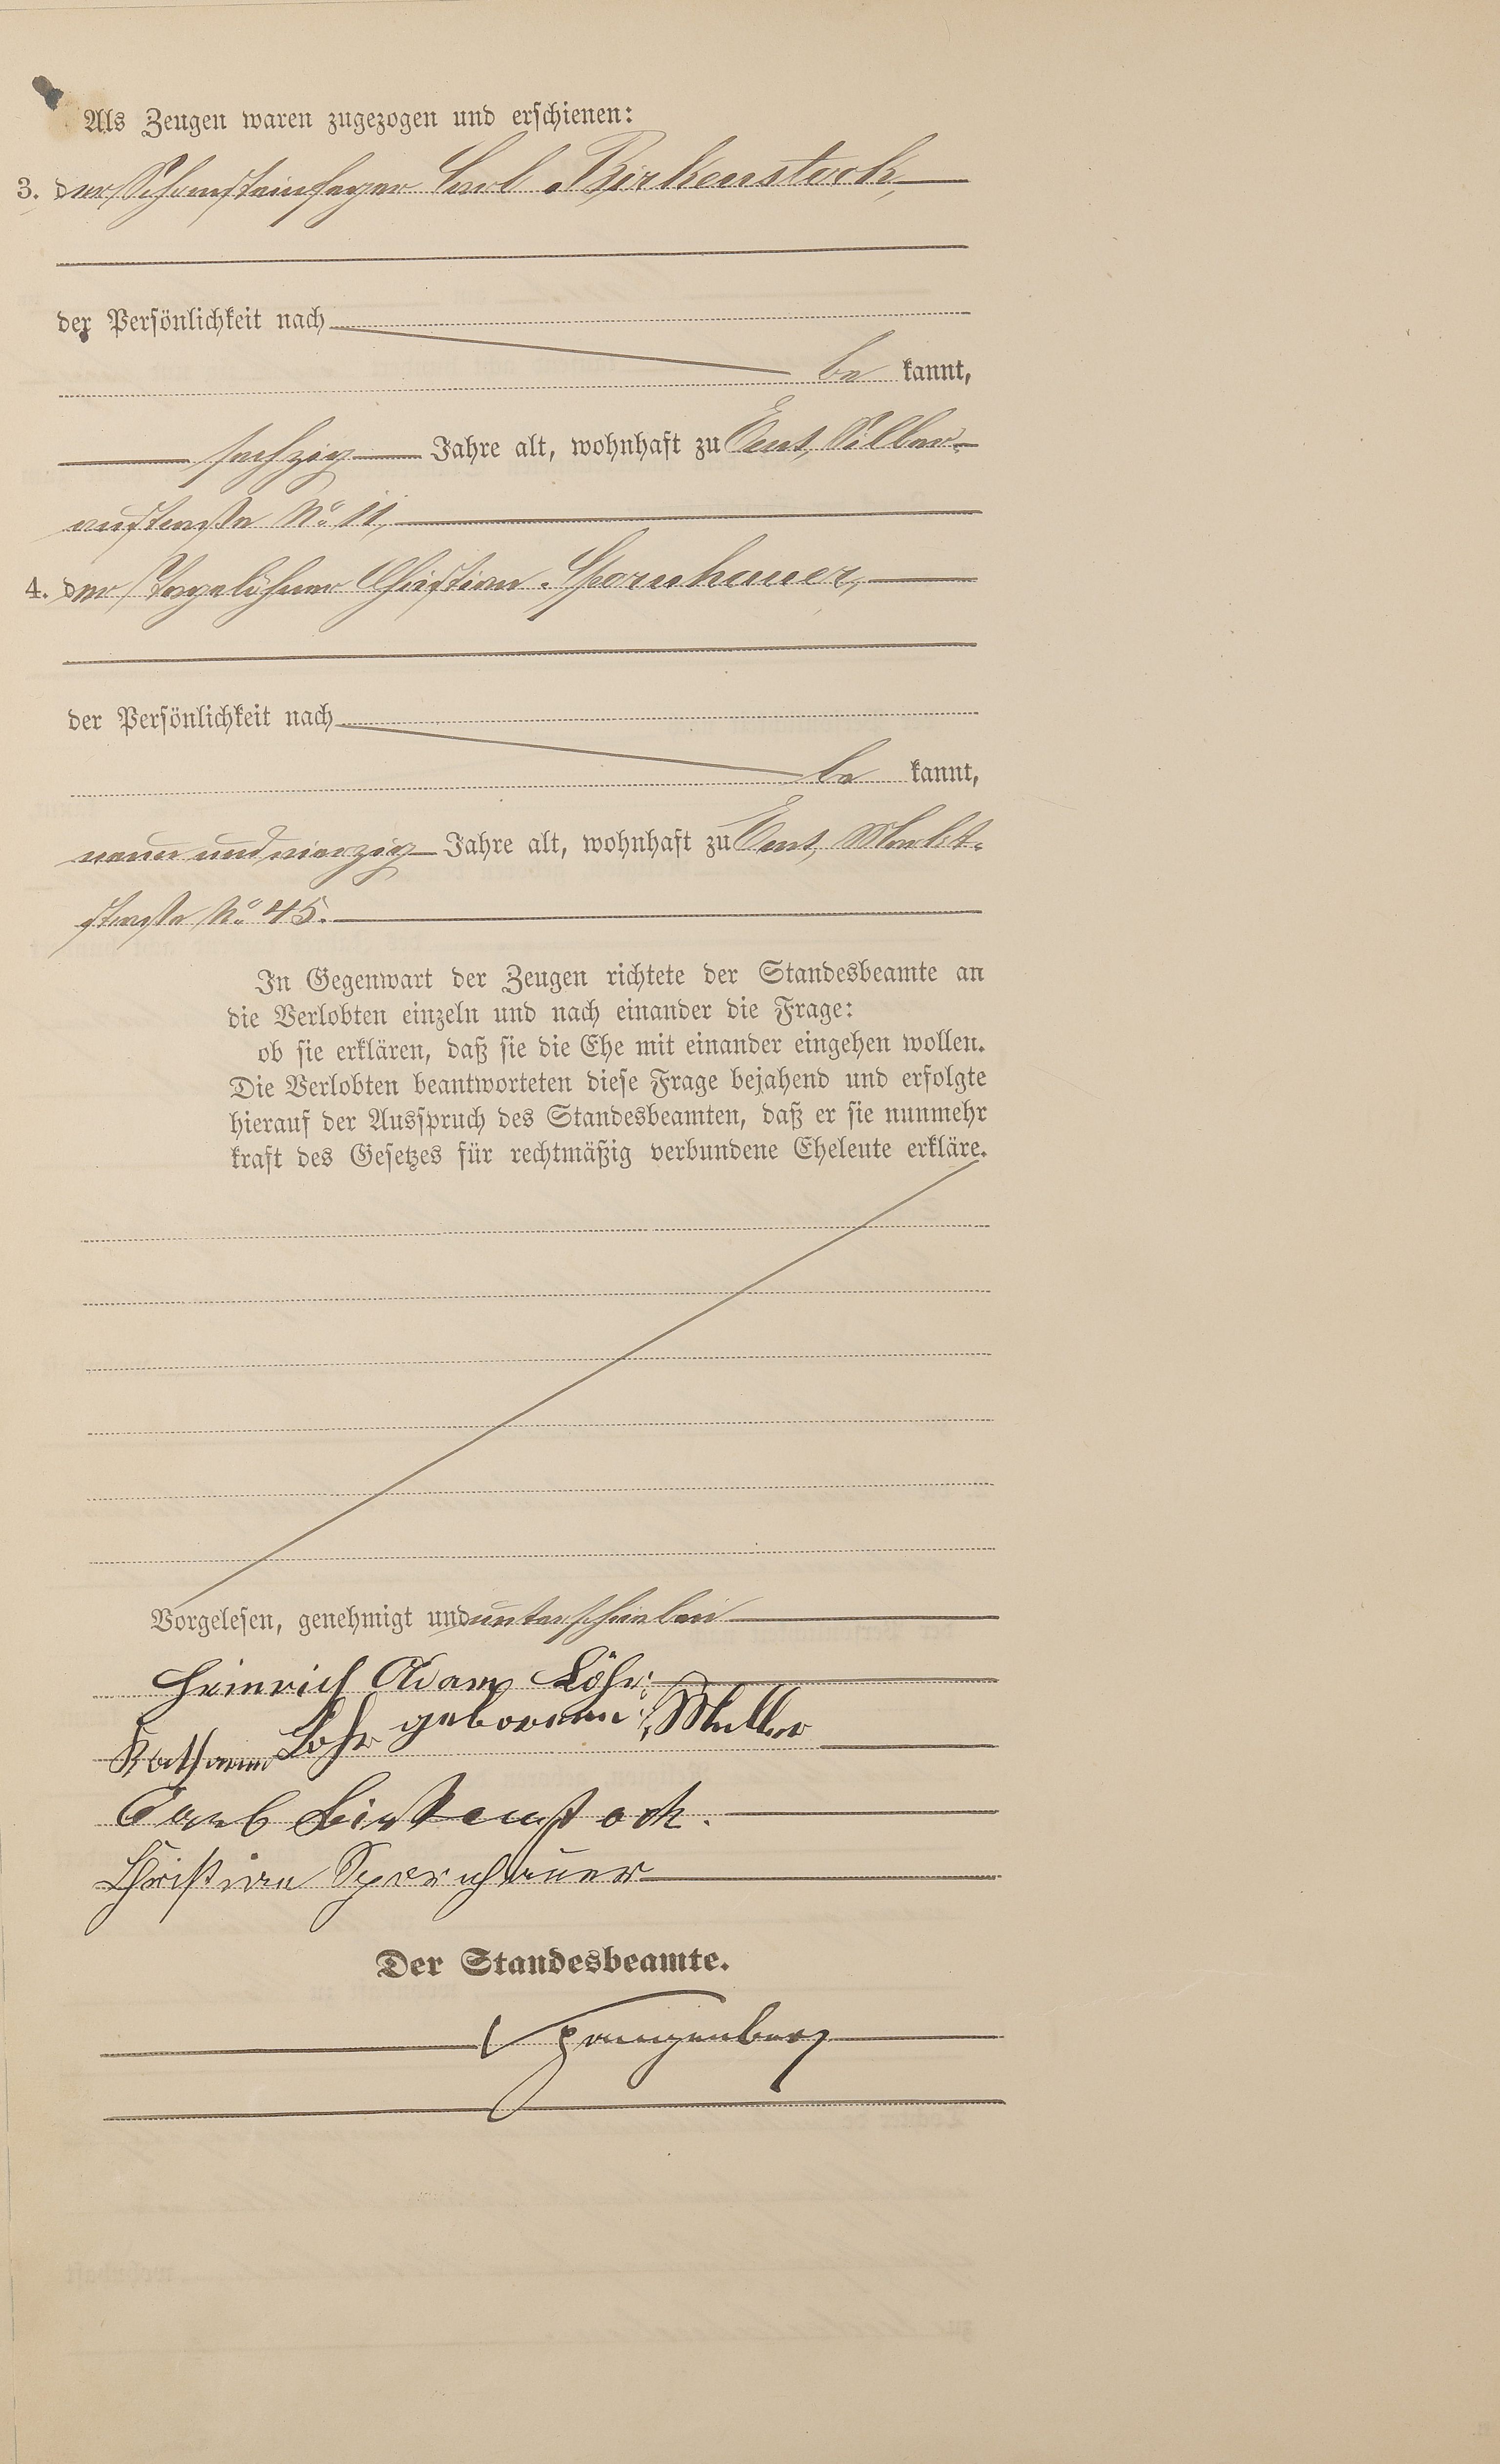 Als Zeugen waren zugezogen und erschienen:
3. der Schornsteinfeger Carl Birkenstock,
der Persönlichkeit nach
be kannt,
sechzig Jahre alt, wohnhaft zu Ems, Silber-
austraße No 11,
4. der Tagelöhner Christian Spornhauer,
der Persönlichkeit nach
be kannt,
neun und vierzig Jahre alt, wohnhaft zu Ems, Markt-
straße No 45.
In Gegenwart der Zeugen richtete der Standesbeamte an
die Verlobten einzeln und nach einander die Frage:
ob sie erklären, daß sie die Ehe mit einander eingehen wollen.
Die Verlobten beantworteten diese Frage bejahend und erfolgte
hierauf der Ausspruch des Standesbeamten, daß er sie nunmehr
kraft des Gesetzes für rechtmäßig verbundene Eheleute erkläre.
Vorgelesen, genehmigt und unterschrieben
Heinrich Adam Löhr
Löhr geborene Müller
Carl Birkenstock.
Christian Spornhauer
Der Standesbeamte.
Spangenberg